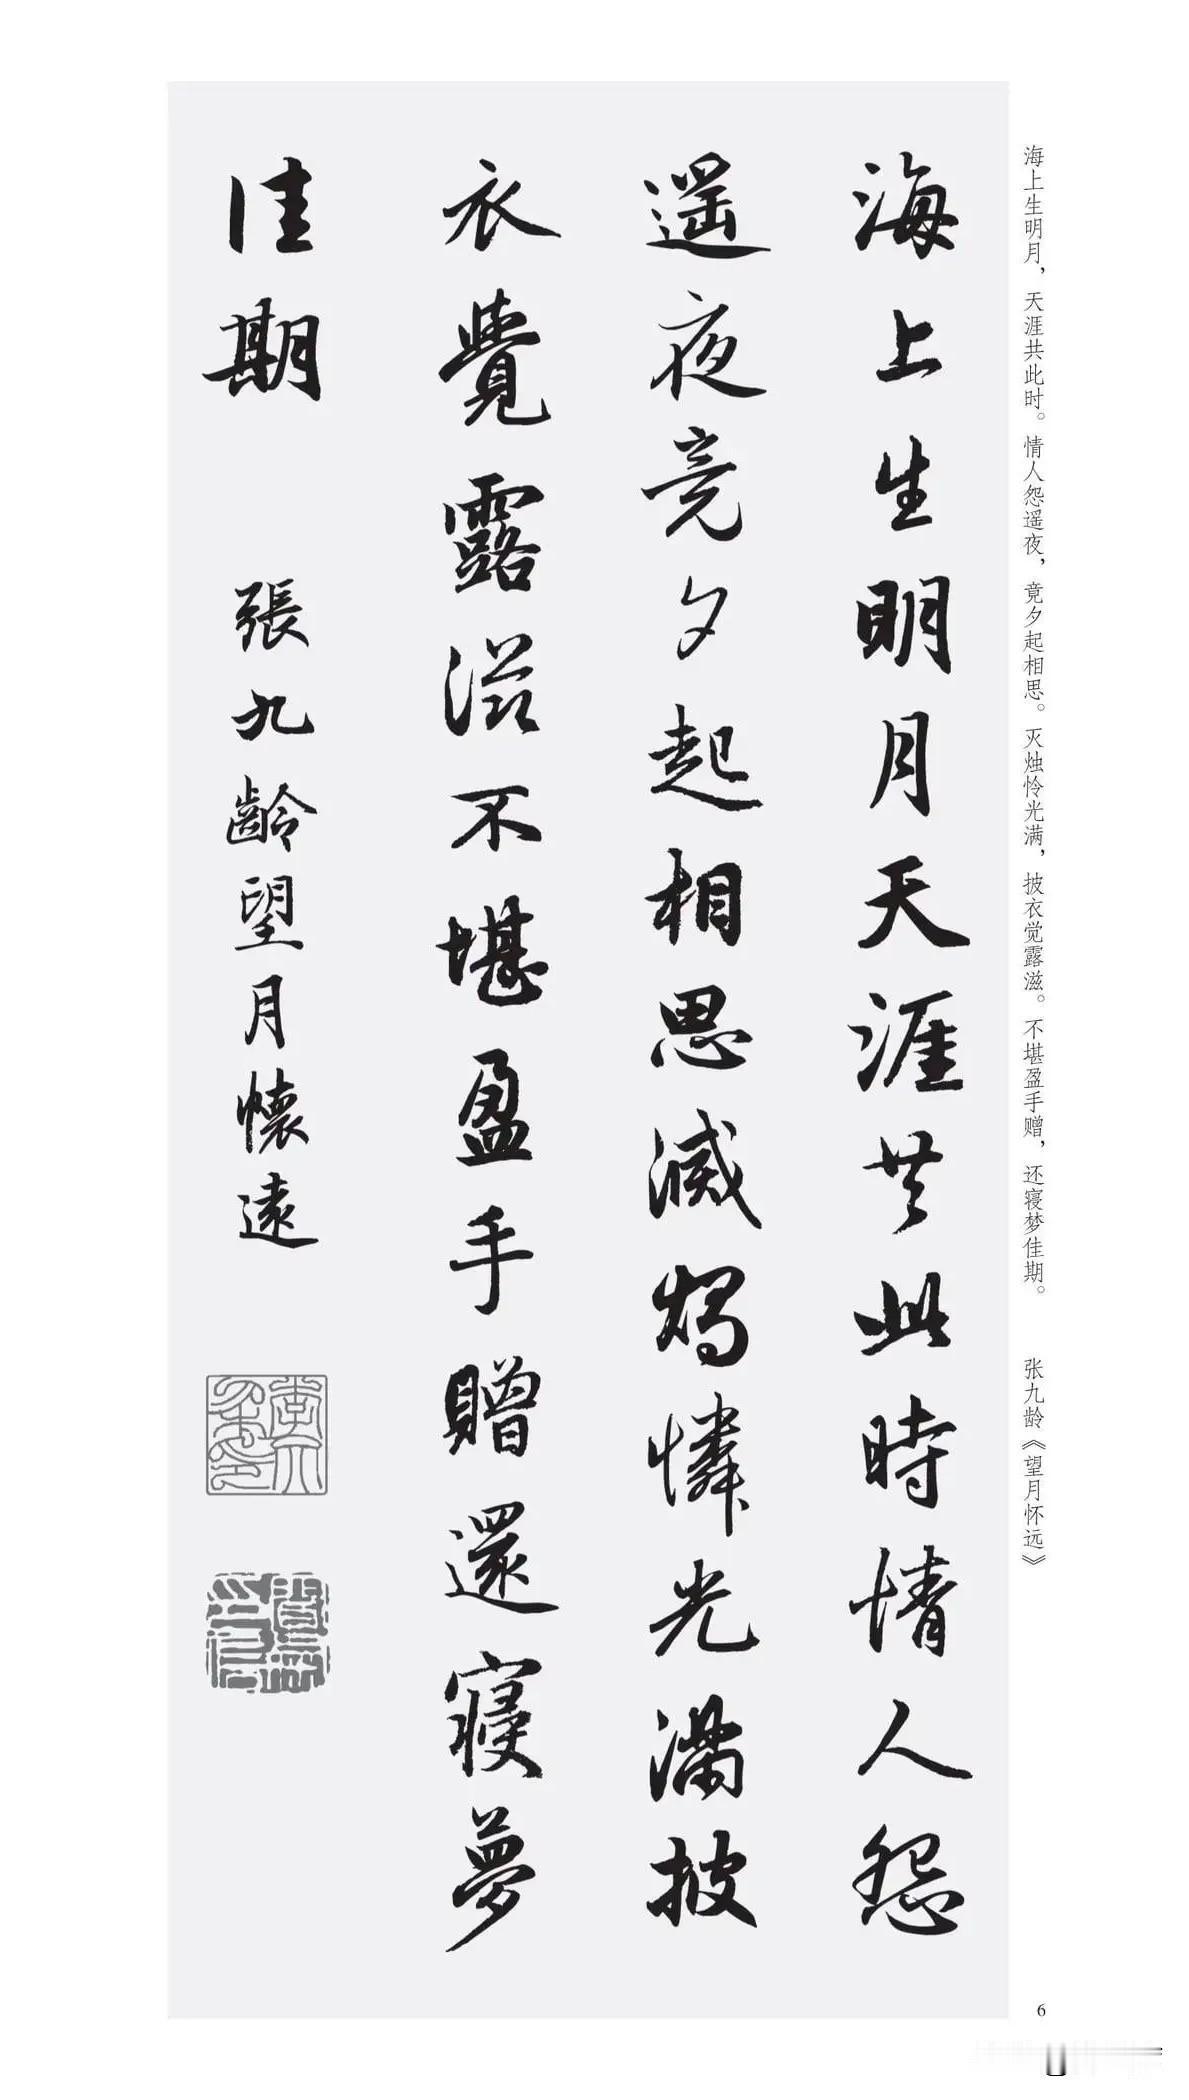 海上生明月，天涯共此时。情人怨遥夜，竟夕起相思。灭烛怜光满，披衣觉露滋。不堪盈手赠，还寝梦佳期。　张九龄《望月怀远》
海上生明月天涯共此時情人怨
遥夜竟夕起相思滅燭憐光滿披
衣覺露滋不堪盈手贈還寢夢
佳期　張九齡望月懷遠
6